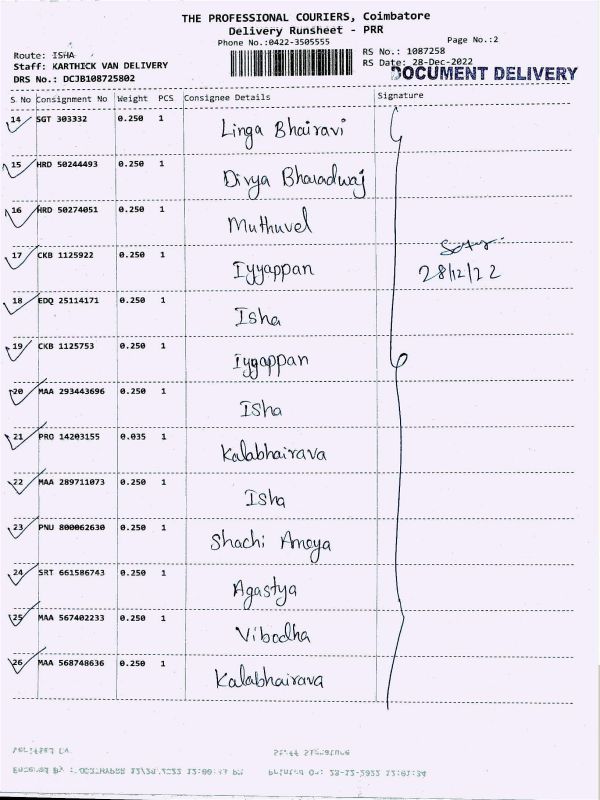 THE PROFESSIONAL COURIERS, Coimbatore
Delivery Runsheet - PRR
Phone No.:0422-3505555 Page No.:2
Route: ISHA RS No.: 1087258
Staff: KARTHICK VAN DELIVERY RS Date: 28-Dec-2022
DRS No.: DCJB108725802 DOCUMENT DELIVERY
S No Consignment No Weight PCS Consignee Details Signature
14 SGT 303332 0.250 1 Linga Bhairavi
15 HRD 50244493 0.250 1 Divya Bharadwaj
16 HRD 50274051 0.250 1 Muthuvel
17 CKB 1125922 0.250 1 Iyyappan 28/12/22
18 EDQ 25114171 0.250 1 Isha
19 CKB 1125753 0.250 1 Iyyappan
20 MAA 293443696 0.250 1 Isha
21 PRO 14203155 0.035 1 Kalabhairava
22 MAA 289711073 0.250 1 Isha
23 PNU 800062630 0.250 1 Shachi Ameya
24 SRT 661586743 0.250 1 Agastya
25 MAA 567402233 0.250 1 Vibodha
26 MAA 568748636 0.250 1 Kalabhairava
Verified By Staff Signature
Entered By : Printed On: 28-12-2022 12:01:34